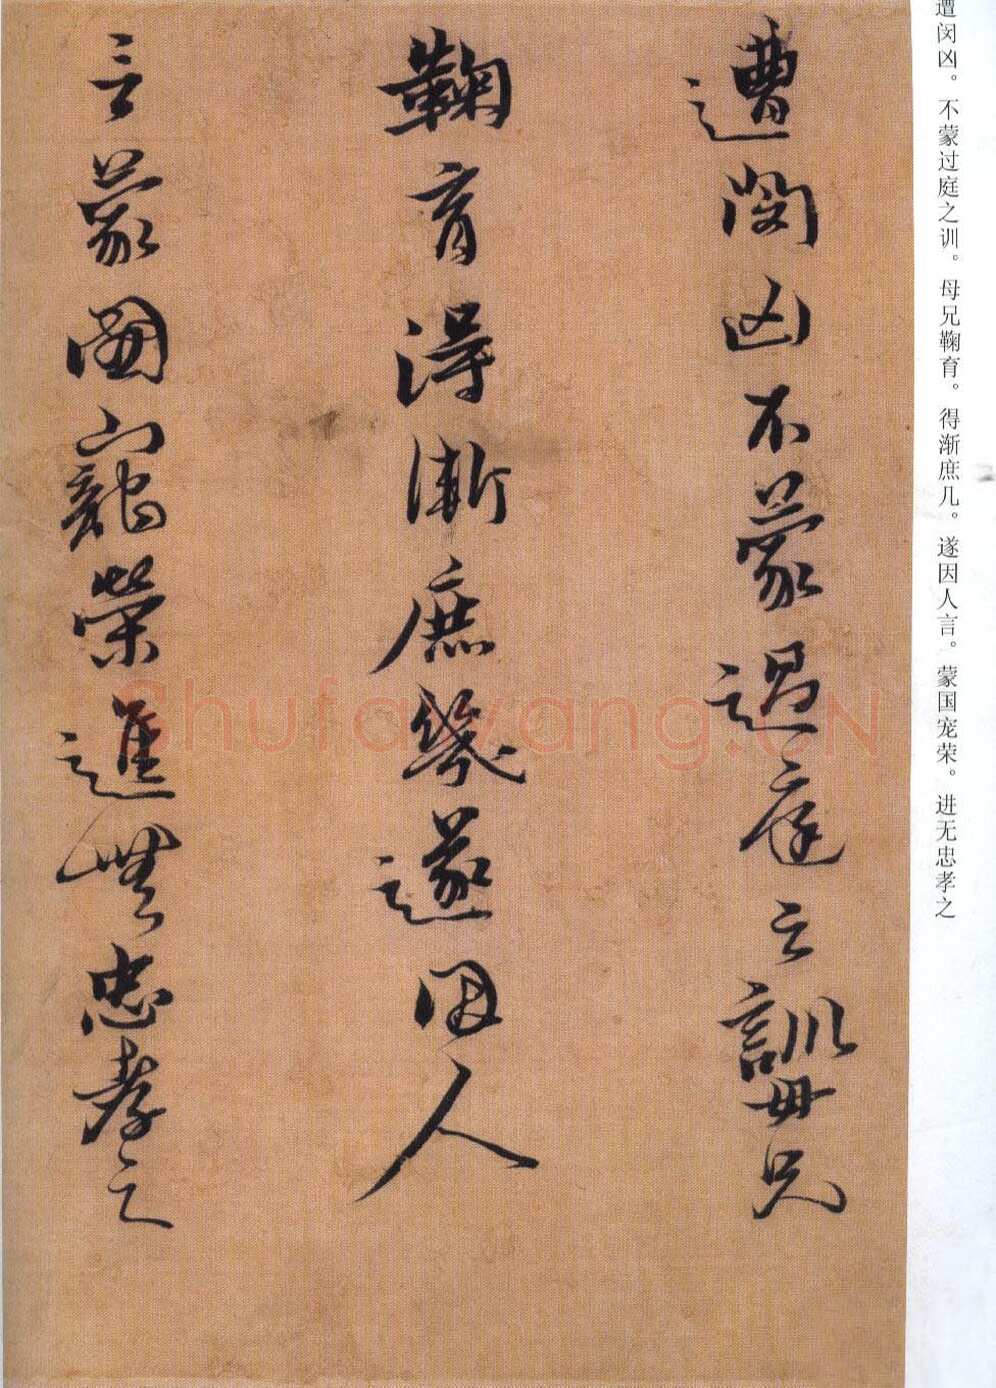 遭闵凶。不蒙过庭之训。母兄鞠育。得渐庶几。遂因人言。蒙国宠荣。进无忠孝之
遭閔凶不蒙過庭之訓母兄
鞠育得漸庶幾遂因人
言蒙國寵榮進無忠孝之
Shufawang.CN